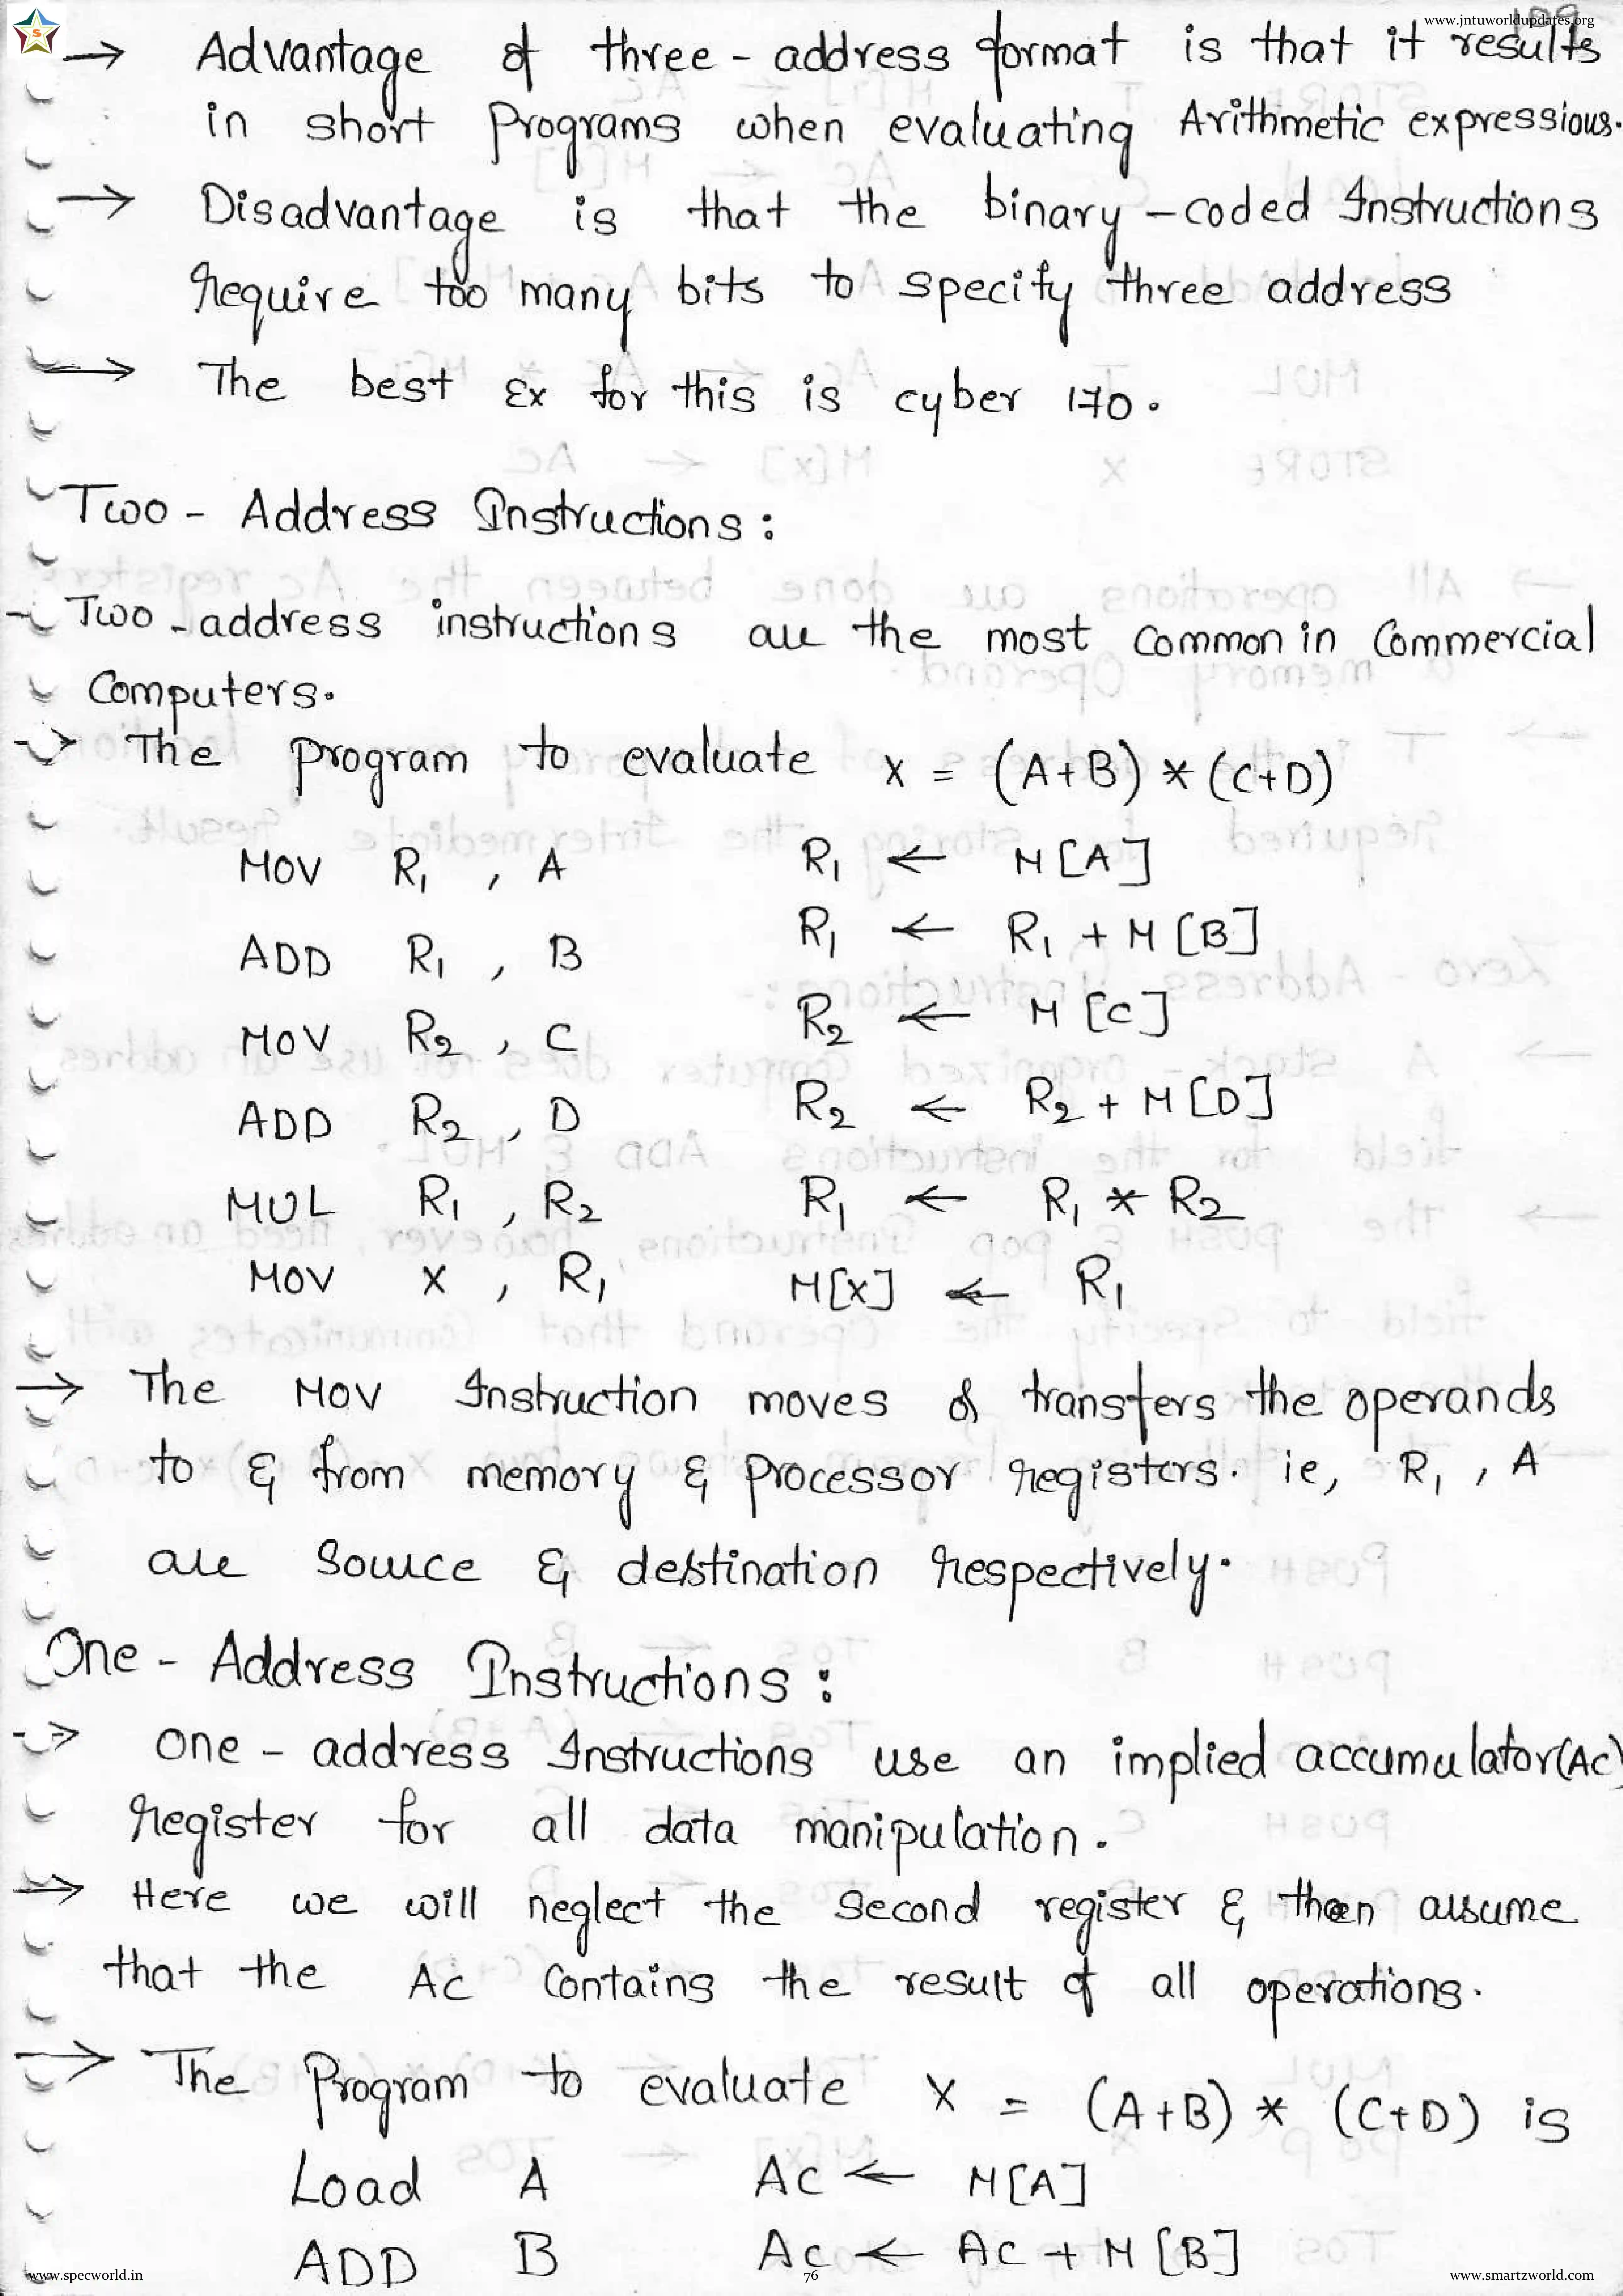 www.jntuworldupdates.org
→ Advantage of three - address format is that it results
in short programs when evaluating Arithmetic expressions.
→ Disadvantage is that the binary - coded Instructions
require too many bits to specify three address
→ The best Ex for this is cyber 170.
Two - Address Instructions :
- Two - address instructions are the most common in Commercial
Computers.
→ The program to evaluate X = (A+B) * (C+D)
MOV R1 , A R1 ← M[A]
ADD R1 , B R1 ← R1 + M[B]
MOV R2 , C R2 ← M[C]
ADD R2 , D R2 ← R2 + M[D]
MUL R1 , R2 R1 ← R1 * R2
MOV X , R1 M[X] ← R1
→ The MOV Instruction moves or transfers the operands
to & from memory & processor registers. ie, R1 , A
are source & destination respectively.
One - Address Instructions :
→ One - address Instructions use an implied accumulator(AC)
register for all data manipulation.
→ Here we will neglect the second register & then assume
that the AC contains the result of all operations.
→ The Program to evaluate X = (A+B) * (C+D) is
Load A AC ← M[A]
ADD B AC ← AC + M[B]
www.specworld.in 76 www.smartzworld.com